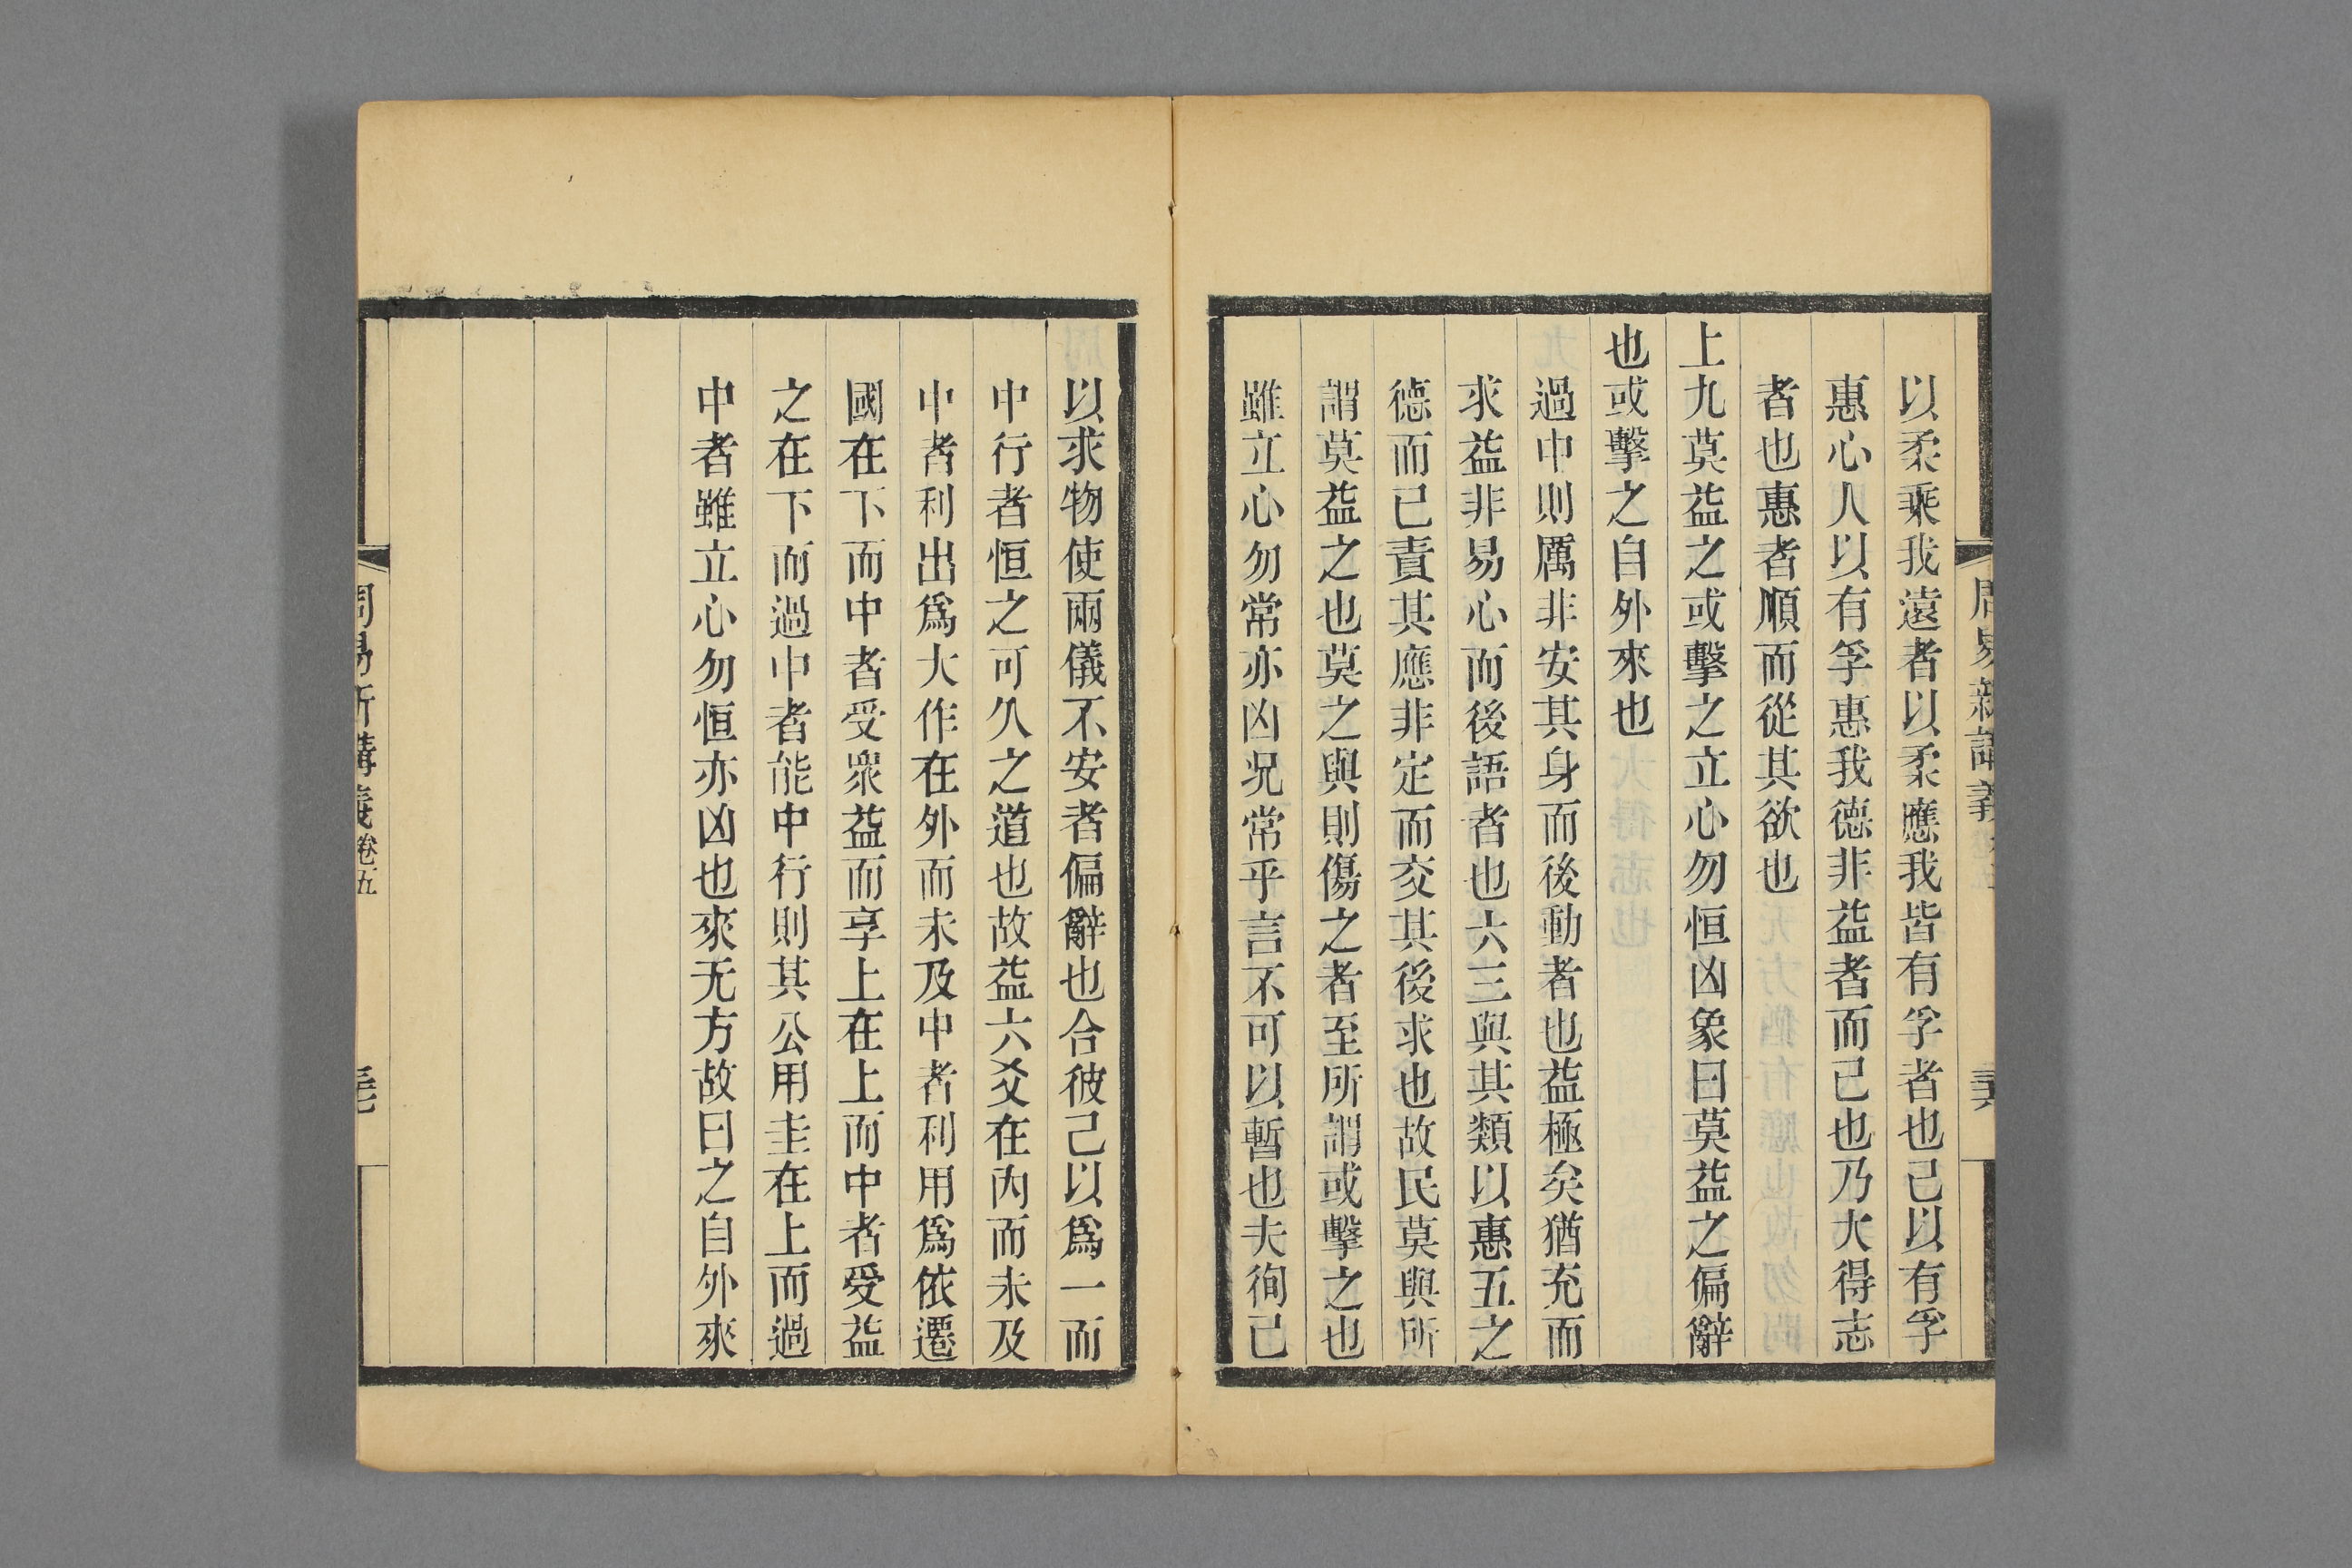 以柔乘我遠者以柔應我皆有孚者也己以有孚
惠心人以有孚惠我德非益者而已也乃大得志
者也惠者順而從其欲也
上九莫益之或擊之立心勿恒凶象曰莫益之偏辭
也或擊之自外來也
過中則厲非安其身而後動者也益極矣猶充而
求益非易心而後語者也六三與其類以惠五之
德而已責其應非定而交其後求也故民莫與所
謂莫益之也莫之與則傷之者至所謂或擊之也
雖立心勿常亦凶況常乎言不可以暫也夫徇己
以求物使兩儀不安者偏辭也合彼己以為一而
中行者恒之可久之道也故益六爻在內而未及
中者利出為大作在外而未及中者利用為依遷
國在下而中者受衆益而享上在上而中者受益
之在下而過中者能中行則其公用圭在上而過
中者雖立心勿恒亦凶也來无方故曰之自外來
周易新講義卷五